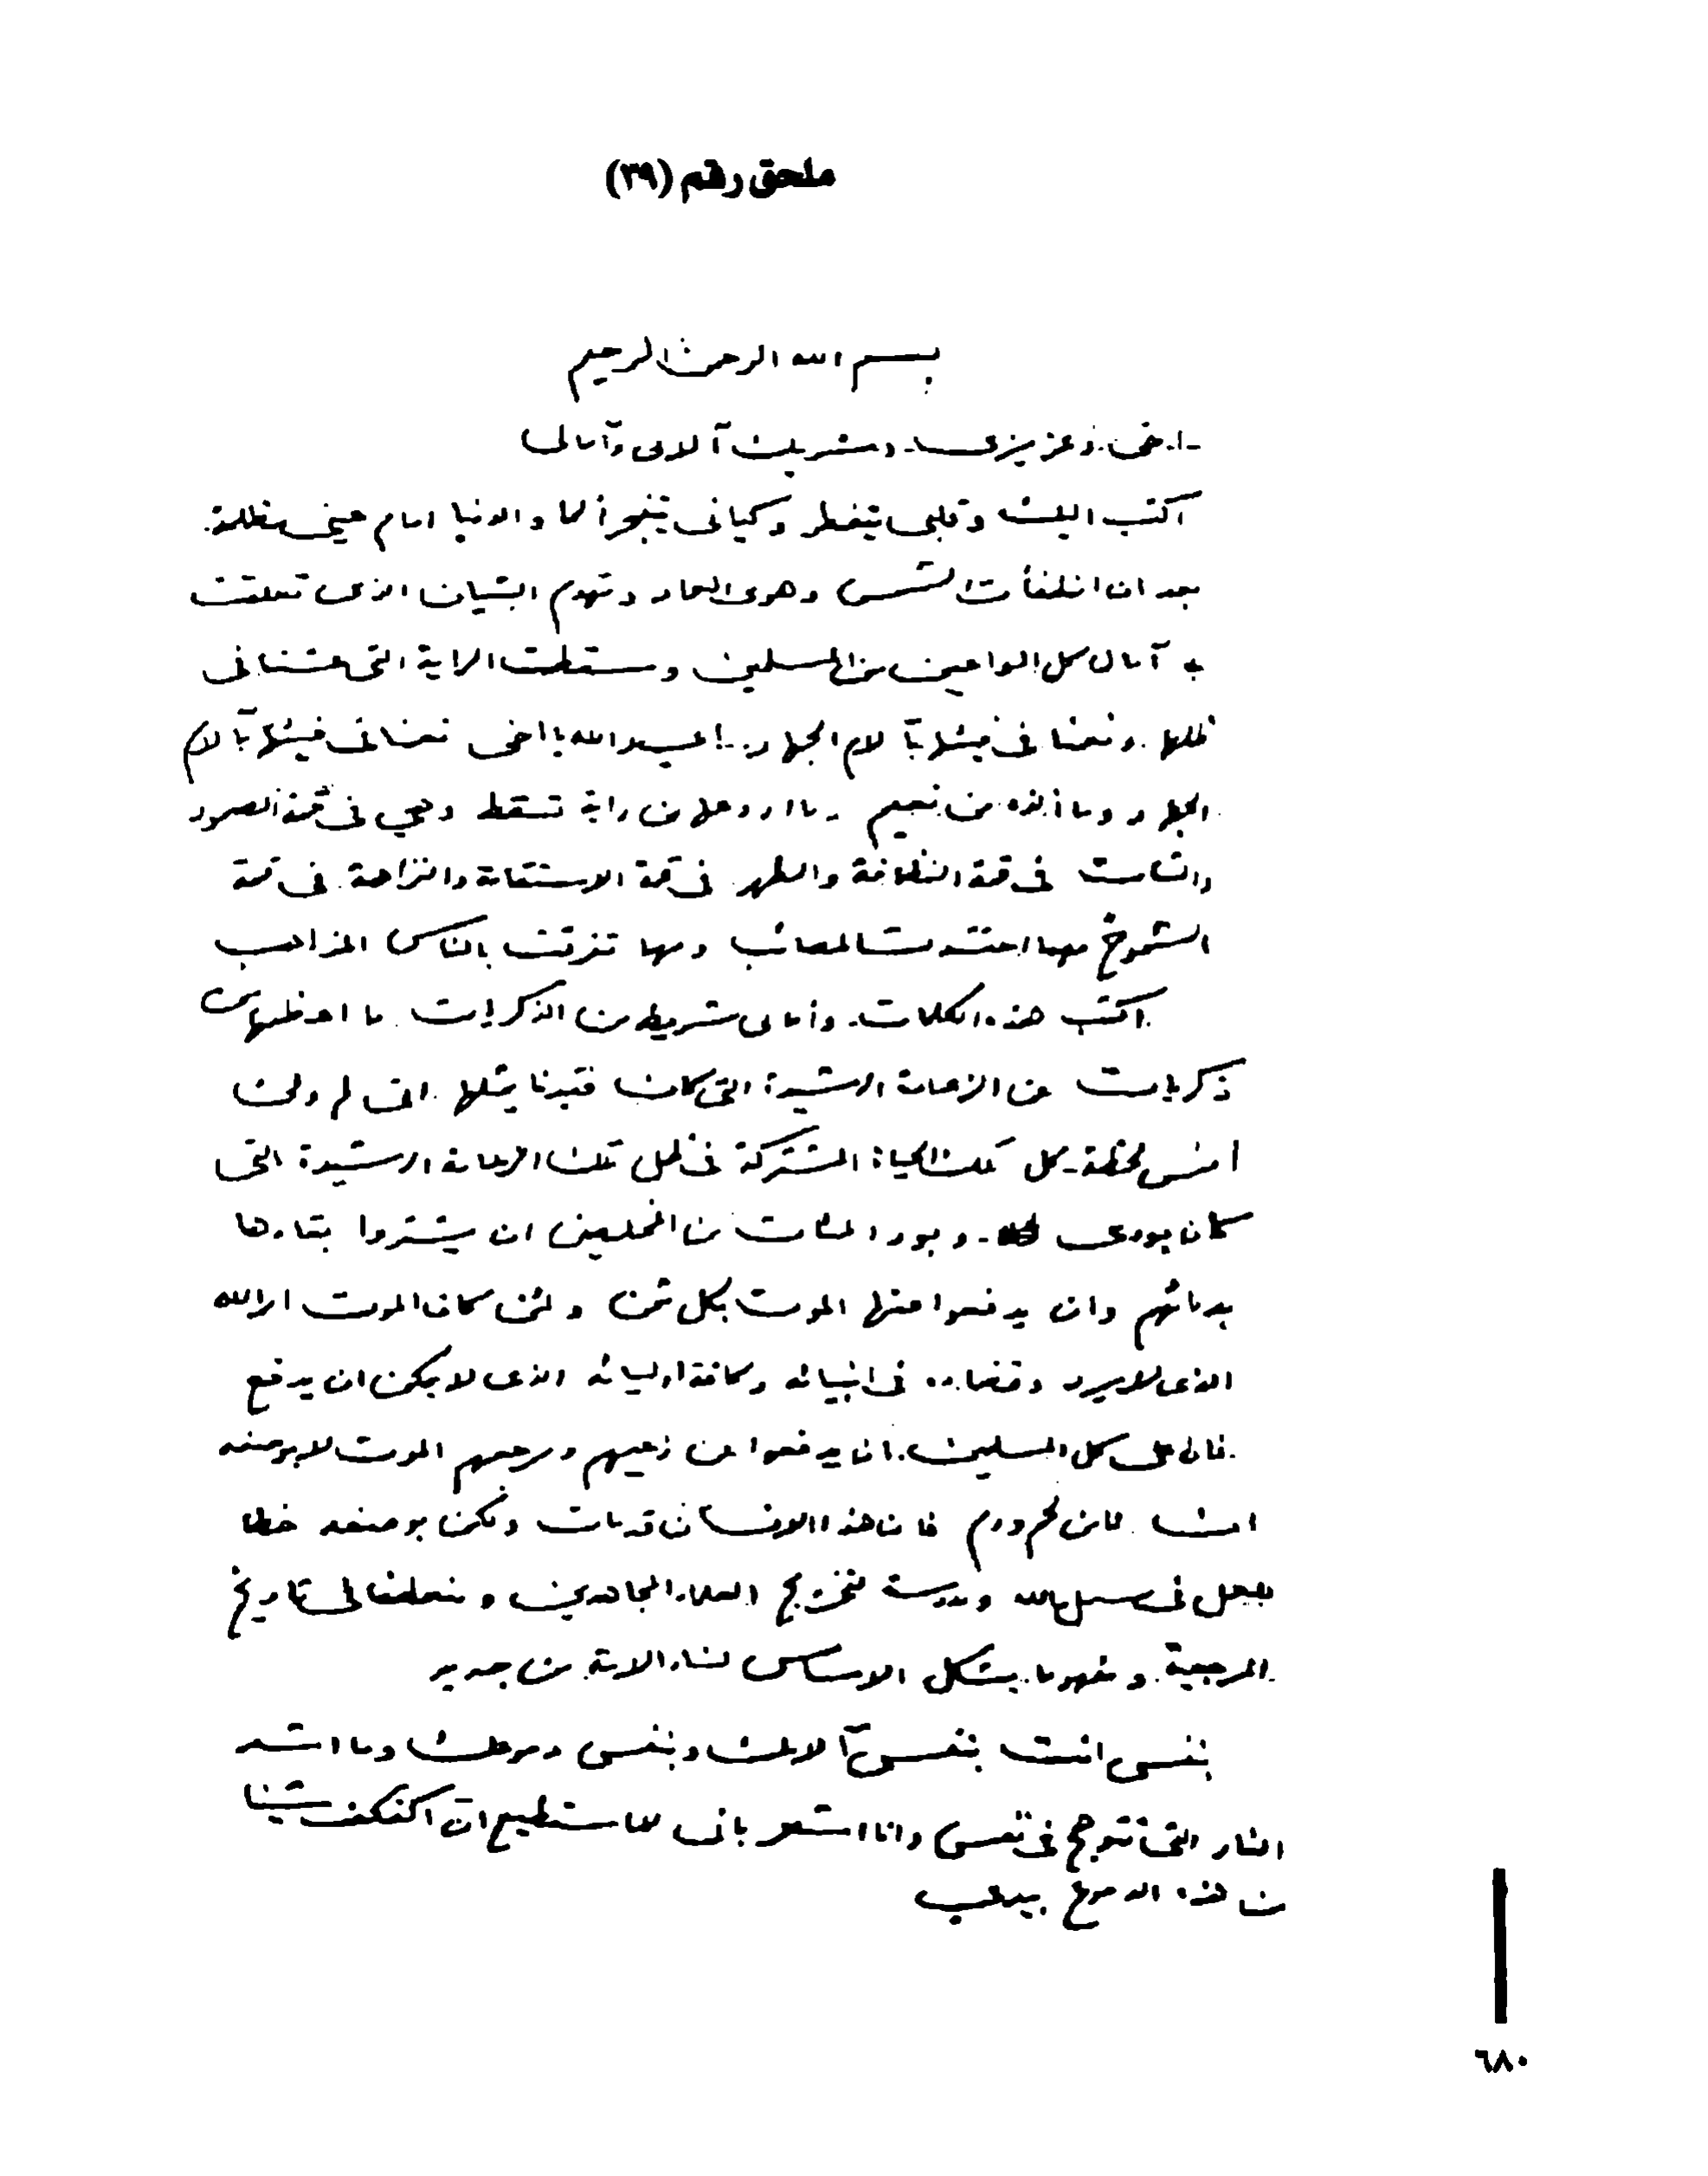 ملحق رقم (٣٩)
بسم الله الرحمن الرحيم
اخي وعزيزي وشريك آلامي وآمالي
اكتب اليك وقلبي يتفطر وكياني يتفجر ألما والدنيا امام عيني مظلمة
بعد ان انطفأت الشمس وهوى العماد وتهدم البنيان الذي تعلقت
به آمال كل الواعين من المسلمين وسقطت الراية التي عشنا في
ظلها ونعمنا في فيئها بآلام الجهاد اي والله يا اخي نعمنا في فيئها بآلام
الجهاد وما ألذه من نعيم وما اروعها من راية تسقط وهي في قمة الصمود
والثبات في قمة النظافة والطهر في قمة الاستقامة والنزاهة في قمة
الشموخ مهما اشتدت المصائب ومهما تفرقت بالناس المذاهب
اكتب هذه الكلمات وأمامي شريط من الذكريات ما اعظمها من
ذكريات عن الزعامة الرشيدة التي كان فقيدنا يمثلها انى لم ولن
انسى لحظة كل تلك الحياة المشتركة في ظل تلك الزعامة الرشيدة التي
كان بودي وبود المئات من المخلصين ان يشتروا بقاءها
بدمائهم وان يدفعوا عنها الموت بكل ثمن ولئن كان الموت امر الله
الذي لا يرد وقضاءه في انبيائه وكافة اوليائه الذي لا يمكن ان يدفع
فان على كل المسلمين ان يدفعوا عن زعيمهم ومرجعهم الموت لا بوصفه
انسانا من لحم ودم فان هذا الانسان قد مات ولكن بوصفه خطا
للعمل في سبيل الله ومدرسة لتخريج العلماء المجاهدين ومنعطفا في تاريخ
المرجعية ومفهوما يشكل الاساس لبناء الامة من جديد
بنفسي انت بنفسي آلامك وبنفسي دموعك وما اشد
النار التي تتوهج في نفسي وانا اشعر باني لا استطيع ان اكفكف شيئا
من هذه الدموع بيدي
٦٨٠